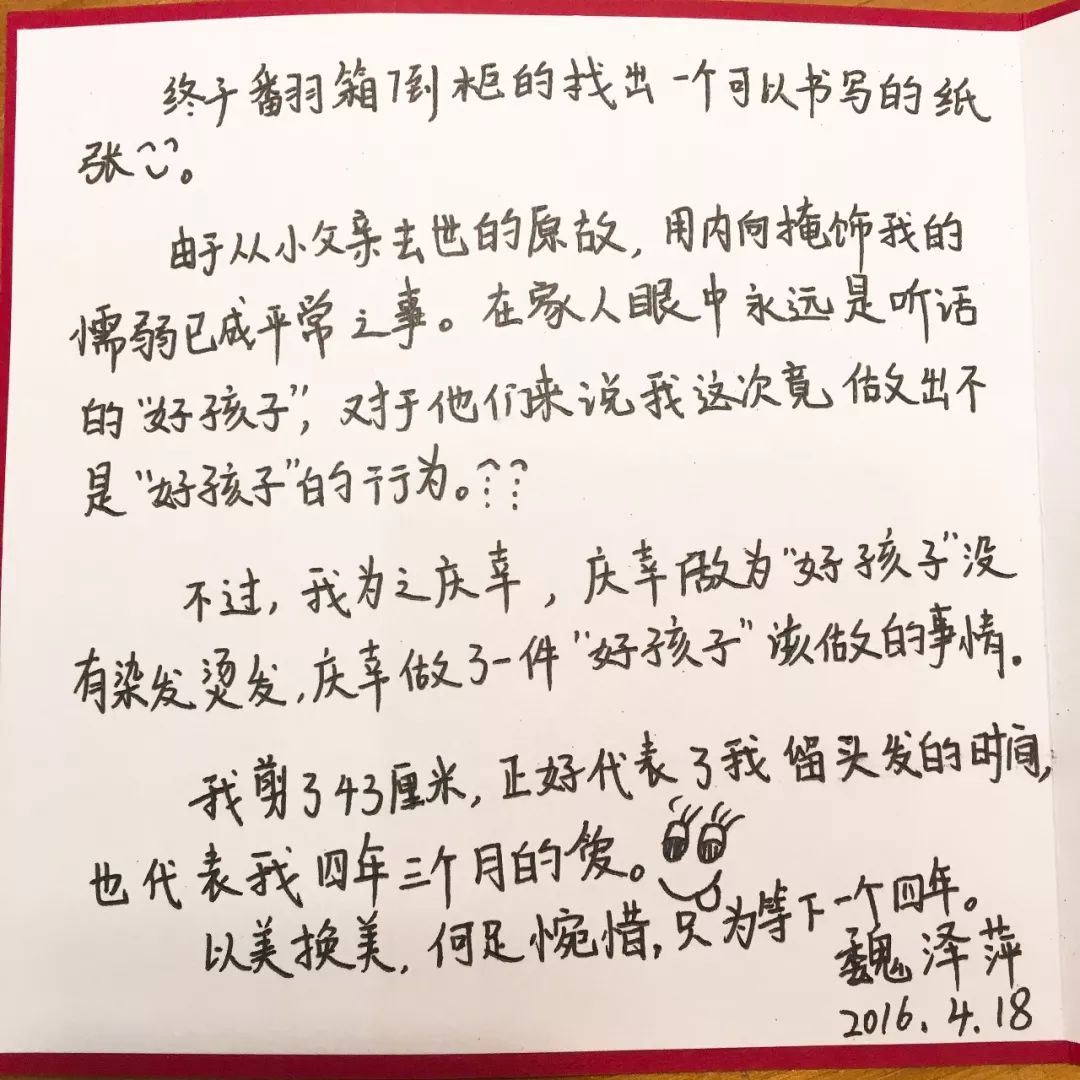 终于翻箱倒柜的找出一个可以书写的纸
张。
由于从小父亲去世的原故，用内向掩饰我的
懦弱已成平常之事。在家人眼中永远是听话
的“好孩子”，对于他们来说我这次竟做出不
是“好孩子”的行为。
不过，我为之庆幸，庆幸做为“好孩子”没
有染发烫发，庆幸做了一件“好孩子”该做的事情。
我剪了43厘米，正好代表了我留头发的时间，
也代表我四年三个月的爱。
以美换美，何足惋惜，只为等下一个四年。
魏泽萍
2016.4.18